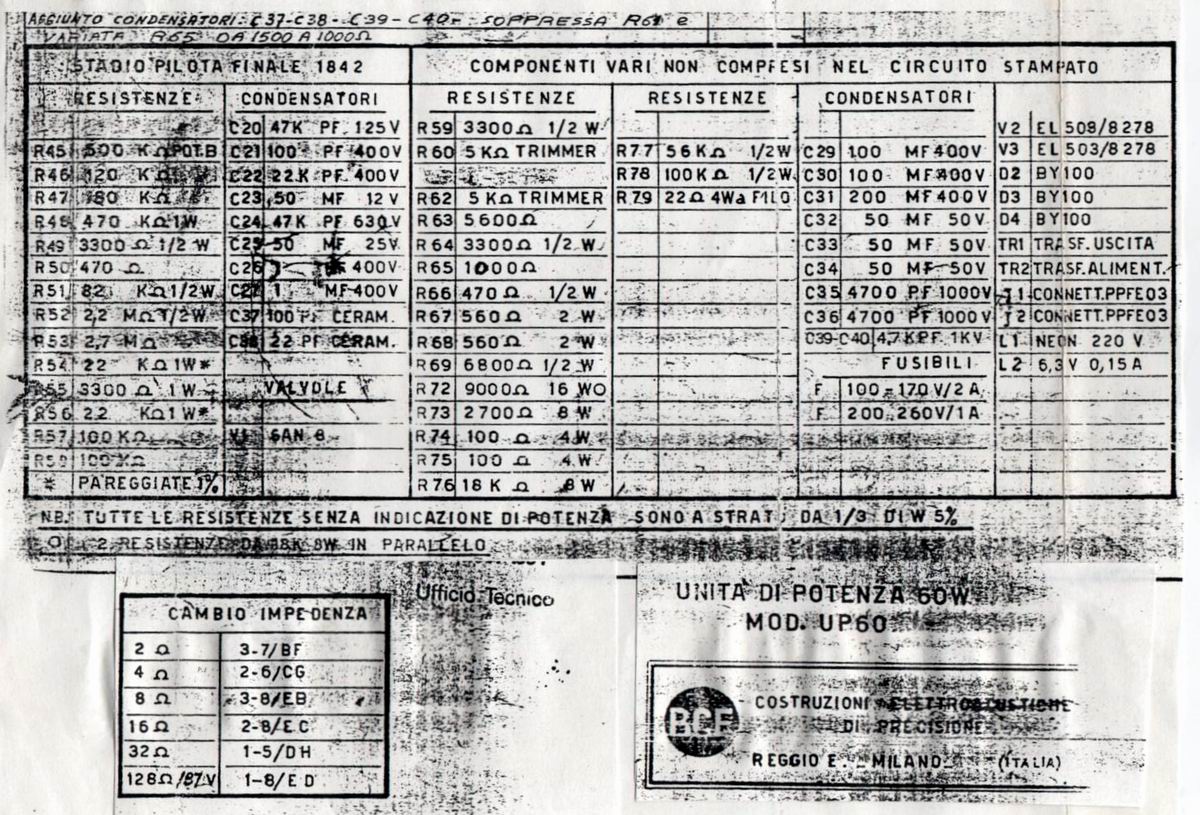 AGGIUNTO CONDENSATORI: C37-C38-C39-C40- SOPPRESSA R61 e
VARIATA R65 DA 1500 A 1000Ω
STADIO PILOTA FINALE 1842
RESISTENZE CONDENSATORI
C20 47K PF 125V
R45 500 KΩ POT.B C21 100 PF 400V
R46 120 KΩ C22 22K PF 400V
R47 180 KΩ C23 50 MF 12V
R48 470 KΩ 1W C24 47K PF 630V
R49 3300 Ω 1/2 W C25 50 MF 25V
R50 470 Ω C26 400V
R51 82 KΩ 1/2W C27 1 MF 400V
R52 2,2 MΩ 1/2W C37 100 PF CERAM.
R53 2,7 MΩ C38 22 PF CERAM.
R54 22 KΩ 1W*
R55 3300 Ω 1W VALVOLE
R56 22 KΩ 1W*
R57 100 KΩ V1 6AN 8
R58 100 KΩ
* PAREGGIATE 1%
COMPONENTI VARI NON COMPFESI NEL CIRCUITO STAMPATO
RESISTENZE
R59 3300Ω 1/2 W
R60 5 KΩ TRIMMER
R62 5 KΩ TRIMMER
R63 5600Ω
R64 3300Ω 1/2 W
R65 1000Ω
R66 470 Ω 1/2W
R67 560 Ω 2 W
R68 560 Ω 2 W
R69 6800Ω 1/2 W
R72 9000Ω 16 WO
R73 2700Ω 8 W
R74 100 Ω 4 W
R75 100 Ω 4 W
R76 18 K Ω 8W
RESISTENZE
R77 56KΩ 1/2W
R78 100KΩ 1/2W
R79 22Ω 4W a FILO
CONDENSATORI
C29 100 MF 400V
C30 100 MF 400V
C31 200 MF 400V
C32 50 MF 50V
C33 50 MF 50V
C34 50 MF 50V
C35 4700 PF 1000V
C36 4700 PF 1000V
C39-C40 4,7KPF 1KV
FUSIBILI
F 100-170 V/2 A
F 200..260V/1A
V2 EL 509/8278
V3 EL 503/8278
D2 BY100
D3 BY100
D4 BY100
TR1 TRASF. USCITA
TR2 TRASF. ALIMENT.
J1 CONNETT. PPFE03
J2 CONNETT. PPFE03
L1 NEON 220 V
L2 6,3V 0,15A
NB. TUTTE LE RESISTENZE SENZA INDICAZIONE DI POTENZA SONO A STRAT. DA 1/3 DI W 5%
O 2 RESISTENZE DA 18K 8W IN PARALLELO
Ufficio Tecnico
CAMBIO IMPEDENZA
2 Ω 3-7/BF
4 Ω 2-6/CG
8 Ω 3-8/EB
16 Ω 2-8/EC
32 Ω 1-5/DH
128Ω/87V 1-8/ED
UNITA' DI POTENZA 60W
MOD. UP60
RCF
COSTRUZIONI ELETTROACUSTICHE
DI PRECISIONE
REGGIO E. - MILANO - (ITALIA)